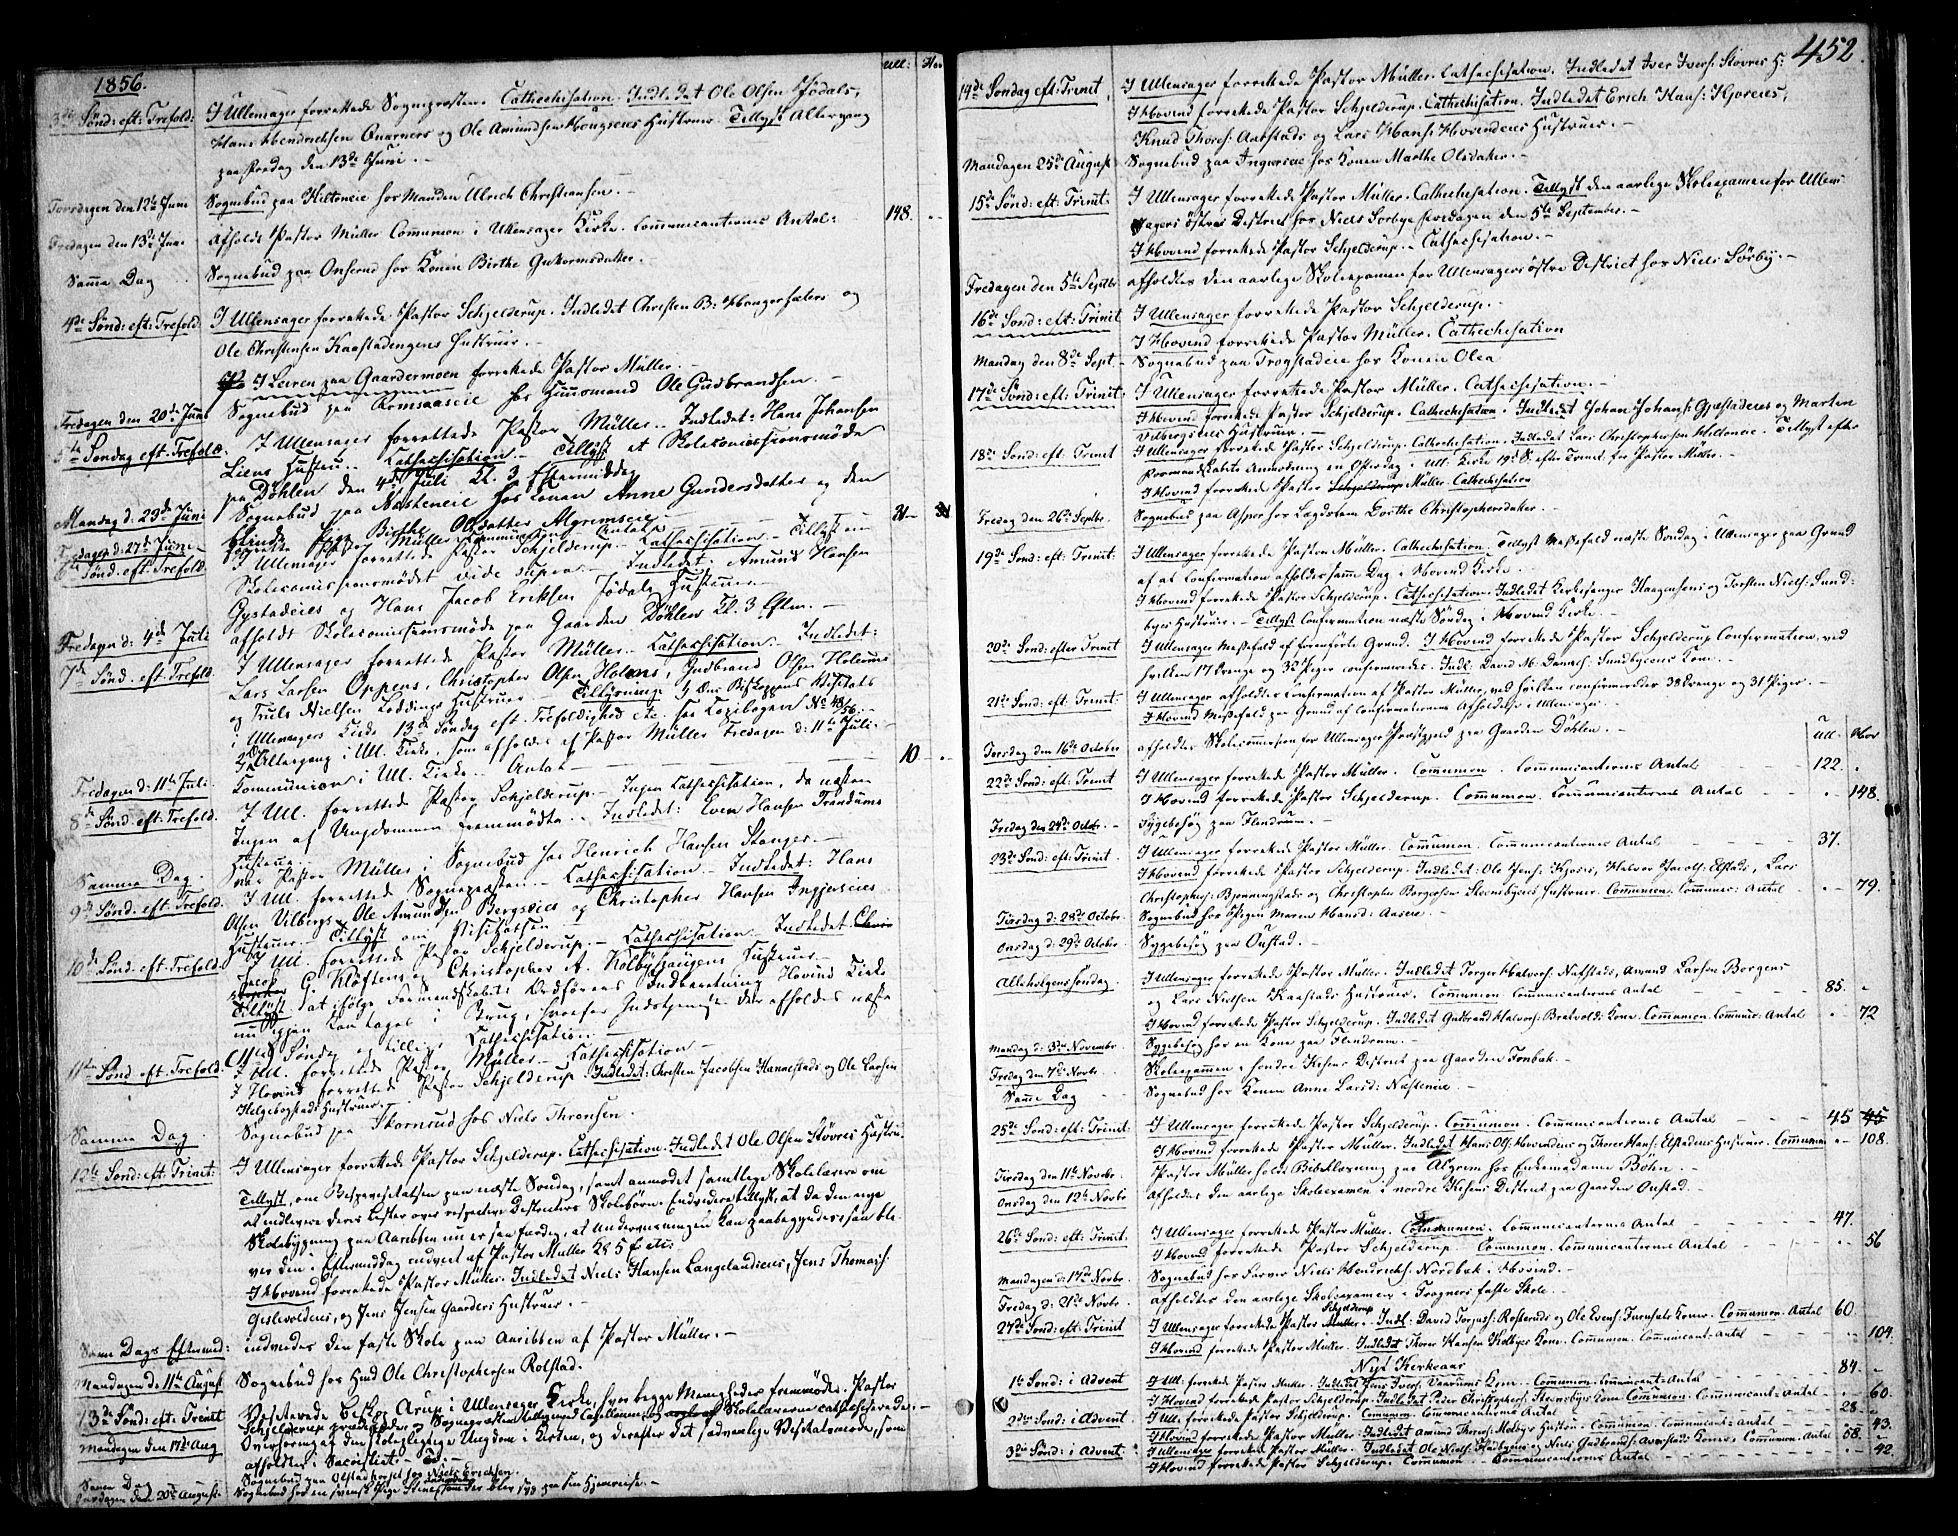 1856.
Ull: Hov
3de Sönd: eft: Trefold: I Ullensager forrettede Sognepræsten. Cathechisation. Indledet Ole Olsen Jödals,
Hans Hendrichsen Onarners og Ole Amundsen Haugseies Hustruer. Tillyst Altergang
paa Fredag den 13de Juni. -
Torsdagen den 12te Juni Sognebud paa Hiltoneie hos Manden Ulrich Christiansen. -
Fredagen den 13de Juni afholdt Pastor Müller Communion i Ullensager Kirke. Communicanternes Antal: 148.
Samme Dag Sognebud paa Onsrud hos Konen Birthe Guttormsdatter. -
4de Sönd: eft: Trefold: I Ullensager forrettede Pastor Schjelderup. Indledet Christen B: Haugersæters og
Ole Christensen Kaastadengens Hustruer. -
I Leiren paa Gaardermoen forrettede Pastor Müller. -
Fredagen den 20de Juni Sognebud paa Romsaaseie hos Huusmand Ole Gudbrandsen. -
5te Söndag eft. Trefold. I Ullensager forrettede Pastor Müller. Indledet: Hans Johansen
Liens Hustru. Cathechisation. - Tillyst et Skolecomissionsmöde
paa Döhlen den 4de Juli Kl. 3 Eftermiddag
Mandag d. 23de Juni Sognebud paa Nasteneie hos Konen Anne Gundersdatter og den
blinde Pige Birthe Olsdatter Algrimseie
Fredagen d. 27de Juni forrettede Pastor Müller Communion Antal 31
6te Sönd. eft. Trefold. I Ullensager forrettede Pastor Schjelderup. - Cathechisation. - Tillyst
Skolecomissionsmödet vide supra. - Indledet: Amund Hansen
Gystadeies og Hans Jacob Eriksen Jödals Hustruer
Fredagen d: 4de Juli afholdt Skolecomissionsmöde paa Gaarden Döhlen Kl. 3 Eftm. -
7de Sönd. eft. Trefold. I Ullensager forrettede Pastor Müller. Cathechisation. Indledet:
Lars Larsen Oppens, Christopher Olsen Holms, Gudbrand Olsen Holums
og Truls Nielsen Loddings Hustruer. Tillysninge 1) Om Biskoppens Visitats
i Ullensagers Kirke 13de Söndag eft. Trefoldighed etc. see Copibogen No 48/56. -
2) Altergang i Ull. Kirke, som afholdes af Pastor Müller Fredagen d: 11te Juli. -
Fredagen d: 11te Juli. Communion i Ull. Kirke. Antal 10
8de Sönd. eft. Trefold. I Ull. forrettede Pastor Schjelderup. Ingen Cathechisation, da næsten
Ingen af Ungdommen fremmödte. - Indledet: Even Hansen Trandums
Hustru.
Samme Dag. var Pastor Müller i Sognebud hos Henrich Hansen Stanger. -
9de Sönd. eft. Trefold. I Ull. forrettede Sognepræsten. Cathechisation Indledet: Hans
Olsen Vilbergs, Ole Amundsen Bergseies og Christopher Hansen Ingierseies
Hustruer. Tillyst om Visitatsen.
10de Sönd. eft. Trefold. I Ull. forrettede Pastor Schjelderup. - Cathechisation. - Indledet:
Jacob G. Klöftens og Christopher A. Kolbyhaugens Hustruer. -
Tillyst at ifölge Formandskabets Ordförers Indberetning Hovind Kirke
nu igjen kan tages i Brug, hvorfor Gudstjeneste der afholdes næste
Söndag og tillige Cathechisation. -
11te Sönd. eft. Trefold. I Ull. forrettede Pastor Müller. - Cathechisation -
I Hovind forrettede Pastor Schjelderup. Indledet: Christen Jacobsen Hannestads og Ole Larsen
Helgebogstads Hustruer. -
Samme Dag Sognebud paa Skornrud hos Niels Thronsen.
12te Sönd: eft: Trinit: I Ullensager forrettede Pastor Schjelderup. Cathechisation. Indledet Ole Olsen Stövres Hustru.
Tillyst, om Bispevisitatsen paa næste Söndag, samt anmodet samtlige Skolelærere om
at indlevere deres Lister over respective Districters Skolebörn. Endvidere tillyst, at da den nye
Skolebygning paa Aaribben nu er saa færdig, at Underviisningen kan paabegyndes, saa bli-
ver den i Eftermiddag indviet af Pastor Müller Kl 5 f. etc.
I Hovind forrettede Pastor Müller. Indledet Niels Hansen Langelandseies, Jens Thomass:
Gislevoldeies, og Jens Jensen Gaarders Hustruer. -
Samme Dags Eftermid: indviedes den faste Skole paa Aaribben af Pastor Müller. -
Mandagen d: 11te August Sognebud hos Hmd Ole Christophersen Rolstad. -
13de Sönd: eft: Trinit Visiterede Biskop Arup i Ullensager Kirke, hvor begge Menigheder fremmödte. Pastor
Schjelderup prædikede. Sognepræsten Capellanen og Skolelærerne catechiserede. -
Mandagen den 17de Aug Overhöring af den skolepligtige Ungdom i Kirken, og derefter det sædvanlige Visitatsmöde, som
afholdtes i Sacristiet. -
Samme Dag Sognebud paa Olstad hos Niels Erichsen.
Lördagen den 20de August. Sognebud hos en svensk Pige Stine som der blev syg paa sin Hjemreise. -
452.
14de Söndag eft: Trinit, I Ullensager forrettede Pastor Müller. Cathechisation. Indledet Iver Ivers: Stovres H:
I Hovind forrettede Pastor Schjelderup. Cathechisation. Indledet Erich Hans: Kjoseies,
Knud Thores: Aarstads og Lars Hans: Hovindeies Hustruer. -
Mandagen 25de August Sognebud paa Ingierseie hos Konen Marthe Olsdatter. -
15de Sönd: eft: Trinit: I Ullensager forrettede Pastor Müller. Cathechisation. Tillyst den aarlige Skoleexamen for Ullen-
sagers östre District hos Niels Sörbye Fredagen den 5te September. -
I Hovind forrettede Pastor Schjelderup. - Cathechisation. -
Fredagen den 5te Septbr afholdtes den aarlige Skoleexamen for Ullensagers östre District hos Niels Sörby. -
16de Sönd: eft: Trinit I Ullensager forrettede Pastor Schjelderup. -
I Hovind forrettede Pastor Müller. Cathechisation
Mandag den 8de Sept. - Sognebud paa Trogstadeie hos Konen Olea
17de Sönd: eft: Trinit: I Ullensager forrettede Pastor Müller. Cathechisation. -
I Hovind forrettede Pastor Schjelderup. Cathechisation. Indledet Johan Johans: Gjestadeies og Morten
Vilbergseies Hustruer. -
18de Sönd: eft: Trinit I Ullensager forrettede Pastor Schjelderup. Cathechisation. Indledet Lars Christophersen Hiltoneie. Tillyst efter
Formandskabets Anmodning en Opsidag i Ull: Kirke 19de S. efter Trinit. for Pastor Müller. -
I Hovind forrettede Pastor Schjelderup Müller. Cathechisation
Fredag den 26de Septbr. Sognebud paa Asper hos Lægdslem Dorthe Christophersdatter. -
19de Sönd: eft: Trinit: I Ullensager forrettede Pastor Müller. Cathechisation. Tillyst Messefald næste Söndag i Ullensager paa Grund
af at Confirmation afholdes samme Dag i Hovind Kirke. -
I Hovind forrettede Pastor Schjelderup. Cathechisation. Indledet Kirkesanger Haagensens og Torsten Niels: Sund-
byes Hustruer. - Tillyst Confirmation næste Söndag i Hovind Kirke. -
20de Sönd: efter Trinit I Ullensager Messefald af foranförte Grund. I Hovind forrettede Pastor Schjelderup Confirmation, ved
hvilken 17 Drenge og 32 Piger confirmeredes. Indl: David M. Daniels: Sundbyeies Kone. -
21de Sönd: eft: Trinit: I Ullensager afholdtes Confirmation af Pastor Müller, ved hvilken confirmeredes 38 Drenge og 31 Piger. -
I Hovind Messefald paa Grund af Confirmationens Afholdelse i Ullensager. -
Ull: Hov
Torsdag den 16de October afholdtes Skolecommission for Ullensagers Præstegjeld paa Gaarden Döhlen. -
22de Sönd: eft: Trinit I Ullensager forrettede Pastor Müller. Communion. Communicanternes Antal 122.
I Hovind forrettede Pastor Schjelderup. Communion. Communicanternes Antal 148.
Fredag den 24de Octobr. - Sygebesög paa Flendrum. -
23de Sönd: eft: Trinit. I Ullensager forrettede Pastor Müller. Communion. Communicanternes Antal 37.
I Hovind forrettede Pastor Schjelderup. Indledet: Ole Jens: Kjoses, Halvor Jacobs: Elstads, Lars
Christophers: Bjenningstads og Christopher Borgersen Steensbyeies Hustruer. Communion. Communic: Antal 79.
Tirsdag d: 28de Octobr. Sognebud hos Pigen Maren Hansd: Aaseie. -
Onsdag d: 29de Octobr. Sygebesög paa Onstad. -
Allehelgenssöndag. I Ullensager forrettede Pastor Müller. Indledet Torger Halvors: Nafstads, Amund Larsen Borgens
og Lars Nielsen Kaastads Hustruer. Communion Communicanternes Antal 85.
I Hovind forrettede Pastor Schjelderup. Indledet Gudbrand Halvors: Bratvolds Kone. Communion. Communic: Antal 72
Mandag d: 3de Novembr. Sygebesög hos en Kone paa Flendrum. -
Fredag d: 7de Novbr. Skoleexamen i söndre Kisens District paa Gaarden Fonbæk. -
Samme Dag Sognebud hos Konen Anne Larsd: Nasteneie. -
25de Sönd: eft: Trinit: I Ullensager forrettede Pastor Schjelderup. Communion. Communicanternes Antal 45 45
I Hovind forrettede Pastor Müller. Indledet Hans Ols: Hovindeies og Thore Hans: Elstadeies Hustruer. Communion 108.
Tirsdag den 11te Novbr. Pastor Müller holdt Bibellæsning paa Algrim hos Enkemadame Böhn. -
Onsdag den 12te Novbr afholdtes den aarlige Skoleexamen i nordre Kisens District paa Gaarden Onstad. -
26de Sönd: eft: Trinit. I Ullensager forrettede Pastor Müller. Communion. Communicanternes Antal 47.
I Hovind forrettede Pastor Schjelderup. Communion. Communicanternes Antal 56
Mandagen d: 17de Novbr. Sognebud hos Farver Niels Hendrichs: Nordbæk i Hovind. -
Fredag d: 21de Novbr. afholdtes den aarlige Skoleexamen i Trogners faste Skole. -
27de Sönd: eft: Trinit I Ullensager forrettede Pastor Müller Schjelderup. Indl: David Torgers: Rosteruds og Ole Evens: Furusets Koner. Communion. Antal 60.
I Hovind forrettede Pastor Müller. Indledet Thore Hansen Holbyes Kone. Communion. Communicant: Antal 104.
Nyt Kirkeaar
1te Sönd: i Advent I Ull. forrettede Pastor Müller. Indledet Jens Ivers: Vaarums Kone. Communion. Communicant: Antal 84.
I Hovind forrettede Pastor Schjelderup. Indledet Peder Christophers: Steensbyes Kone Communion. Communicant: Antal 60.
2den Sönd: i Advent. I Ull: forrettede Pastor Schjelderup. Communion. Communicanternes Antal 28.
I Hovind forrettede Pastor Müller. Indledet Amund Thores: Holbyes Hustru. Communion. Communicant: Antal 43.
3die Sönd: i Advent I Ullensager forrettede Pastor Müller. Indledet Ole Niels: Habyens og Niels Gudbrands: Aurstads Koner. Communion. Antal 58.
I Hovind forrettede Pastor Schjelderup. Communion. Communicanternes Antal 42.